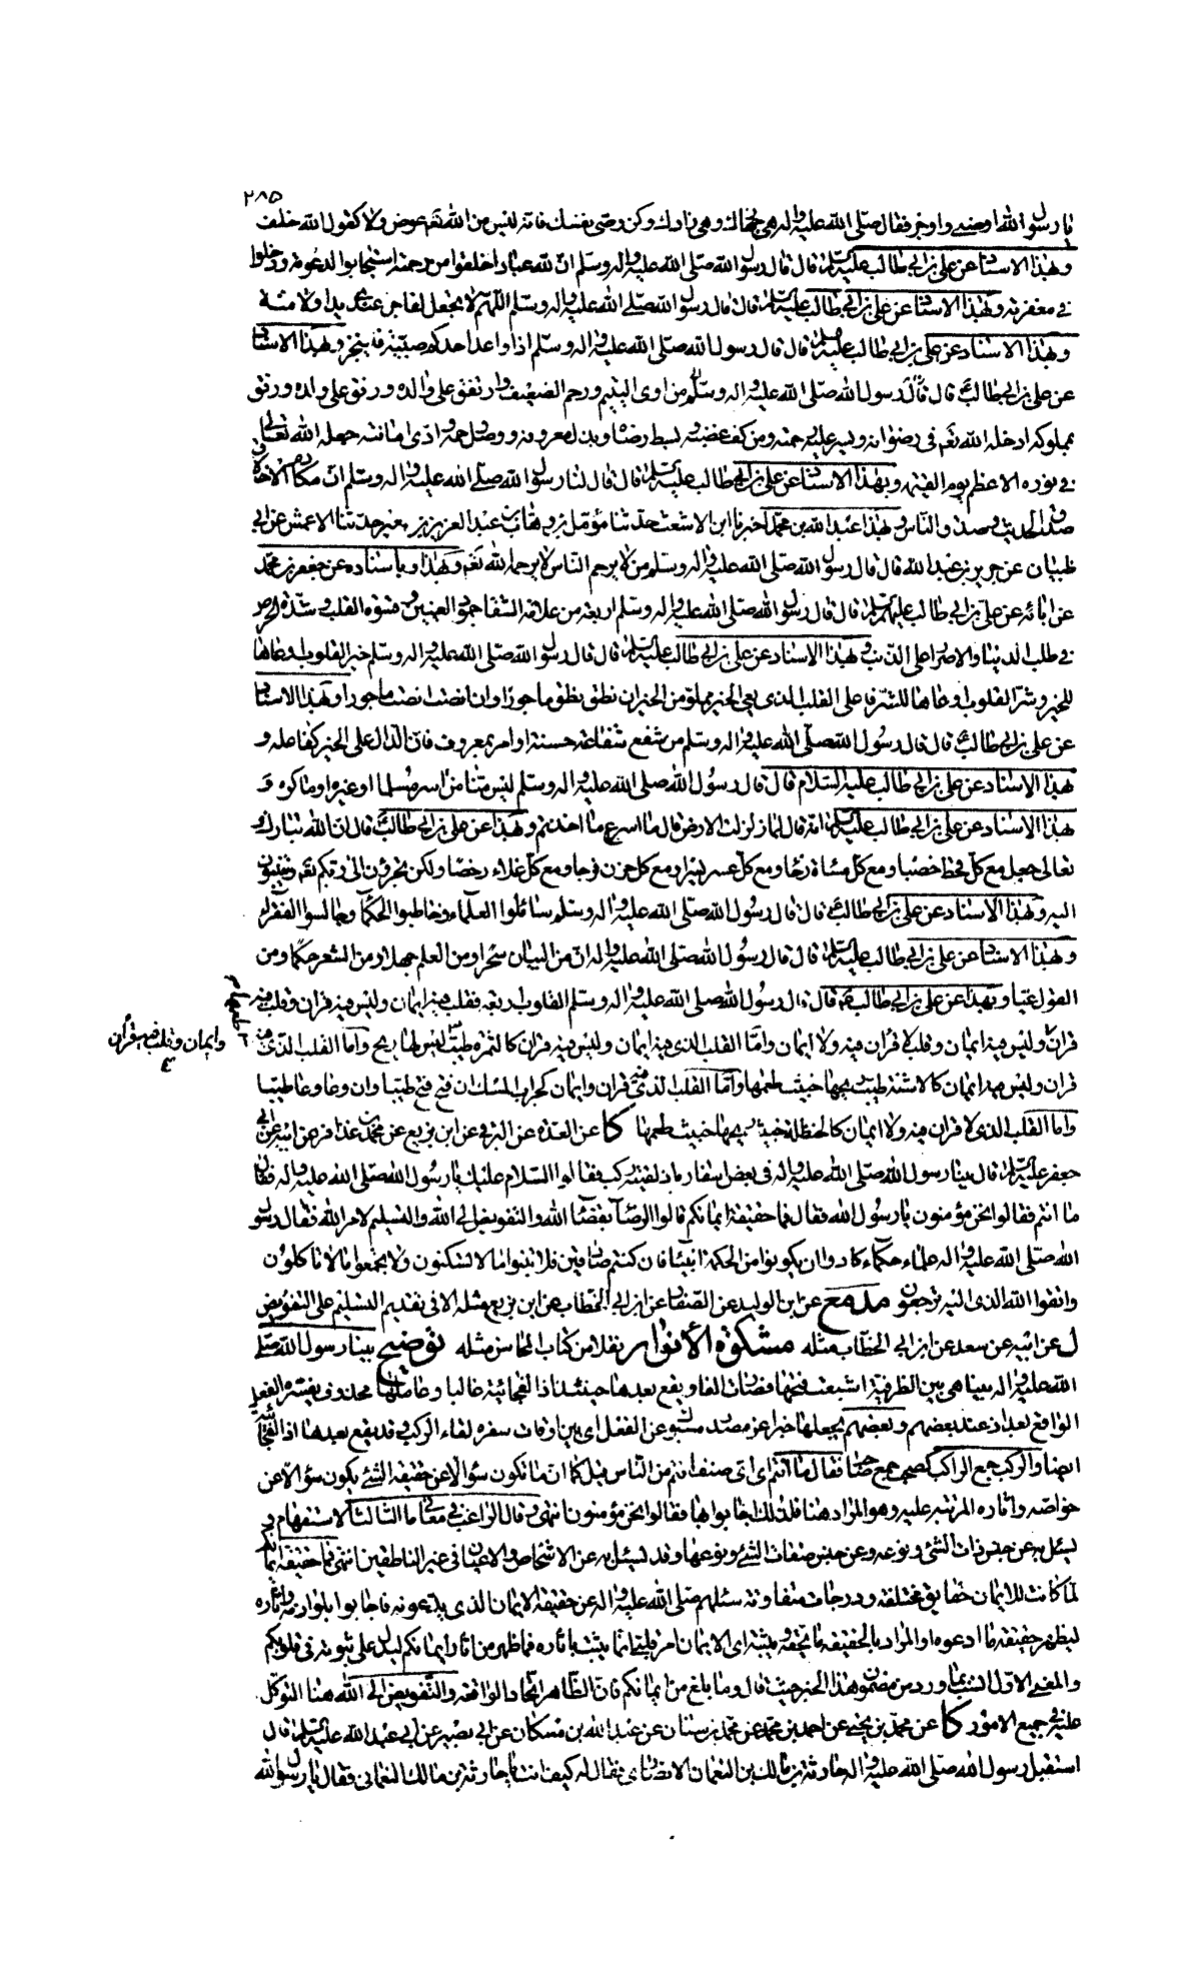 ٢٨٥
يا رسول الله اوصنى واوجز فقال صلى الله عليه واله هيئ جهازك وهيئ زادك وكن وصى نفسك فانه ليس من الله تعم عوض ولا لقول الله خلف
وبهذا الاسناد عن على بن ابي طالب عليه السلام قال قال رسول الله صلى الله عليه واله وسلم ان لله عبادا خلقوا من رحمته استجابوا لدعوته ودخلوا
في مغفرته وبهذا الاسناد عن على بن ابي طالب عليه السلام قال قال رسول الله صلى الله عليه واله وسلم اللهم لا تجعل لفاجر عندي يدا ولا منة
وبهذا الاسناد عن على بن ابي طالب عليه السلام قال قال رسول الله صلى الله عليه واله وسلم اذا واعد احدكم صبيته فلينجز وبهذا الاسناد
عن على بن ابي طالبؑ قال قال رسول الله صلى الله عليه واله وسلم من اوى اليتيم ورحم الضعيف وارتفق على والده ورفق على ولده ورفق
بمملوكه ادخله الله تعم في رضوانه ويسر عليه رحمته ومن كف غضبه وبسط رضاه وبذل معروفه ووصل رحمه وادى امانته جعله الله تعالى
في نوره الاعظم يوم القيمة وبهذا الاسناد عن على بن ابي طالب عليه السلام قال قال لنا رسول الله صلى الله عليه واله وسلم ان مكارم الاخلاق
صدق الحديث وصدق والناس وبهذا عبد الله بن محمد اخبرنا ابن الاشعث حدثنا مؤمل بن وهاب عبد العزيز حدثنا الاعمش عن ابي
ظبيان عن جرير بن عبد الله قال قال رسول الله صلى الله عليه واله وسلم من لا يرحم الناس لا يرحمه الله تعم وبهذا وباسناده عن جعفر بن محمد
عن ابائه عن على بن ابي طالب عليهم السلام قال قال رسول الله صلى الله عليه واله وسلم اربعة من علامة الشقا جمود العينين وقسوة القلب وشدة الحرص
في طلب الدنيا والاصرار على الذنب وبهذا الاسناد عن على بن ابي طالب عليه السلام قال قال رسول الله صلى الله عليه واله وسلم خير القلوب اوعاها
للخير وشر القلوب اوعاها للشر فاعلى القلب الذي يعى الخير مملو من الخير ان نطق نطق ماجورا وان انصت انصت ماجورا وبهذا الاسناد
عن على بن ابي طالبؑ قال قال رسول الله صلى الله عليه واله وسلم من شفع شفاعة حسنة او امر بمعروف فان الدال على الخير كفاعله و
بهذا الاسناد عن على بن ابي طالب عليه السلام قال قال رسول الله صلى الله عليه واله وسلم ليس منا من اسر مسلما او غيره او ماكره و
بهذا الاسناد عن على بن ابي طالب عليه السلام انه قال لما زلزلت الارض قال ما اسرع ما اخذتم وبهذا عن على بن ابي طالبؑ قال ان الله تبارك و
تعالى جعل مع كل قحط خصبا ومع كل مشاة رخا ومع كل عسر يسرا ومع كل حزن فرجا ومع كل غلاء رخصا ولكن تجرؤن الى ربكم تعم وتنيبون
اليه وبهذا الاسناد عن على بن ابي طالبؑ قال قال رسول الله صلى الله عليه واله وسلم سائلوا العلماء وخاطبوا الحكما وجالسوا الفقراء
وبهذا الاسناد عن على بن ابي طالب عليه السلام قال قال رسول الله صلى الله عليه واله ان من البيان سحرا ومن العلم جهلا ومن الشعر حكما ومن
القول عيا وبهذا عن على بن ابي طالبؑ قال قال رسول الله صلى الله عليه واله وسلم القلوب اربعة فقلب فيه ايمان وليس فيه قران وقلب فيه
وايمان وقلب فيه قران
قران وليس فيه ايمان وقلب لا قران فيه ولا ايمان واما القلب الذي فيه ايمان وليس فيه قران كالثمرة طيب ليس لها ريح واما القلب الذي فيه
قران وليس فيه ايمان كالاشنة طيب ريحها خبيث طعمها واما القلب الذي فيه قران وايمان كجراب المسك ان فتح فتح طيبا وان وعا وعا طيبا
واما القلب الذي لا قران فيه ولا ايمان كالحنظلة خبيث ريحها خبيث طعمها كا عن العدة عن البرقي عن ابن بزيع عن محمد بن عذافر عن ابيه عن ابي
جعفر عليه السلام قال بينا رسول الله صلى الله عليه واله في بعض اسفاره اذ لقيه ركب فقالوا السلام عليك يا رسول الله صلى الله عليه واله فقال
ما انتم فقالوا نحن مؤمنون يا رسول الله فقال فما حقيقة ايمانكم قالوا الرضا بقضاء الله والتفويض الى الله والتسليم لامر الله فقال رسول
الله صلى الله عليه واله علماء حكماء كادوا ان يكونوا من الحكمة انبياء فان كنتم صادقين فلا تبنوا ما لا تسكنون ولا تجمعوا ما لا تاكلون
واتقوا الله الذي اليه ترجعون مع عن ابن الوليد عن الصفار عن ابن ابي الخطاب عن ابن بزيع مثله الا في تقديم التسليم على التفويض
ل عن ابيه عن سعد عن ابن ابي الخطاب مثله مشكوة الأنوار نقلا من كتاب المحاسن مثله توضيح بينا رسول الله صلى
الله عليه واله بينا هي بين الظرفية اشبعت فتحتها فصارت الفا ويقع بعدها حينئذ اذ الفجائية غالبا وعاملها محذوف يفسره الفعل
الواقع بعد اذ عند بعضهم وبعضهم يجعلها خبرا عن مصدر مسبوك عن الفعل اي بين اوقات سفره لقاء الركب وقد يقع بعدها اذا الفجائية
ايضا والركب جمع الراكب كصحب جمع صاحب فقال ما انتم اي اي صنف انتم من الناس قيل كما ان ما تكون سؤالا عن حقيقة الشئ يكون سؤالا عن
خواصه واثاره المرتبة عليه وهو المراد هنا فلذلك اجابوا بها فقالوا نحن مؤمنون انتهى وقال الراغب في معاني ما الثالث الاستفهام و
يسئل به عن جنس ذات الشئ ونوعه وعن جنس صفات الشئ ونوعها وقد يسئل به عن الاشخاص والاعيان في غير الناطقين انتهى فما حقيقة ايمانكم
لما كانت للايمان حقايق مختلفة ودرجات متفاوتة سئلهم صلى الله عليه واله عن حقيقة الايمان الذي يدعونه فاجابوا بلوازمه واثاره
ليظهر حقيقة ما ادعوه او المراد بالحقيقة ما يحققه ويثبته اي الايمان امر قلبى انما يثبت باثاره فما ظهر من اثار ايمانكم ليدل على ثبوته في قلوبكم
والمعنى الاول انسب بما ورد من مضمون هذا الخبر حيث قال وما بلغ من ايمانكم فان الظاهر اتحاد الواقعة والتفويض الى الله هنا التوكل
عليه في جميع الامور كا عن محمد بن يحيى عن احمد بن محمد عن محمد بن سنان عن عبد الله بن مسكان عن ابي بصير عن ابي عبد الله عليه السلام قال
استقبل رسول الله صلى الله عليه واله حارثة بن مالك بن النعمان الانصاري فقال له كيف انت يا حارثة بن مالك النعماني فقال يا رسول الله